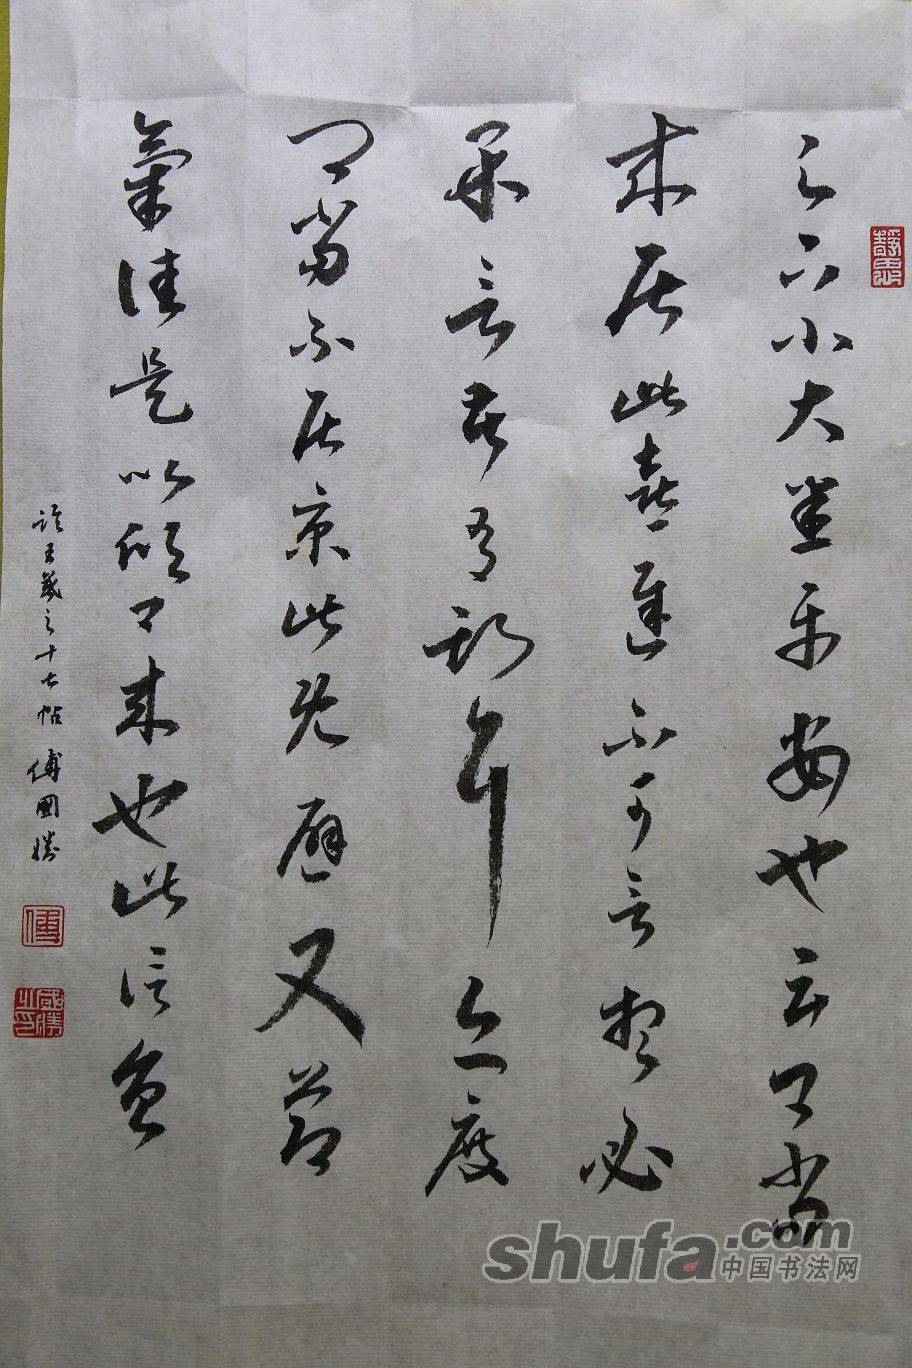 足下小大悉平安也云卿當
來居此喜遲不可言想必
果言告有期耳亦度
卿當不居京此既避又節
氣佳是以欣卿來也此信旨
臨王羲之十七帖 傅國勝
靜思
傅
國勝之印
shufa.com
中国书法网